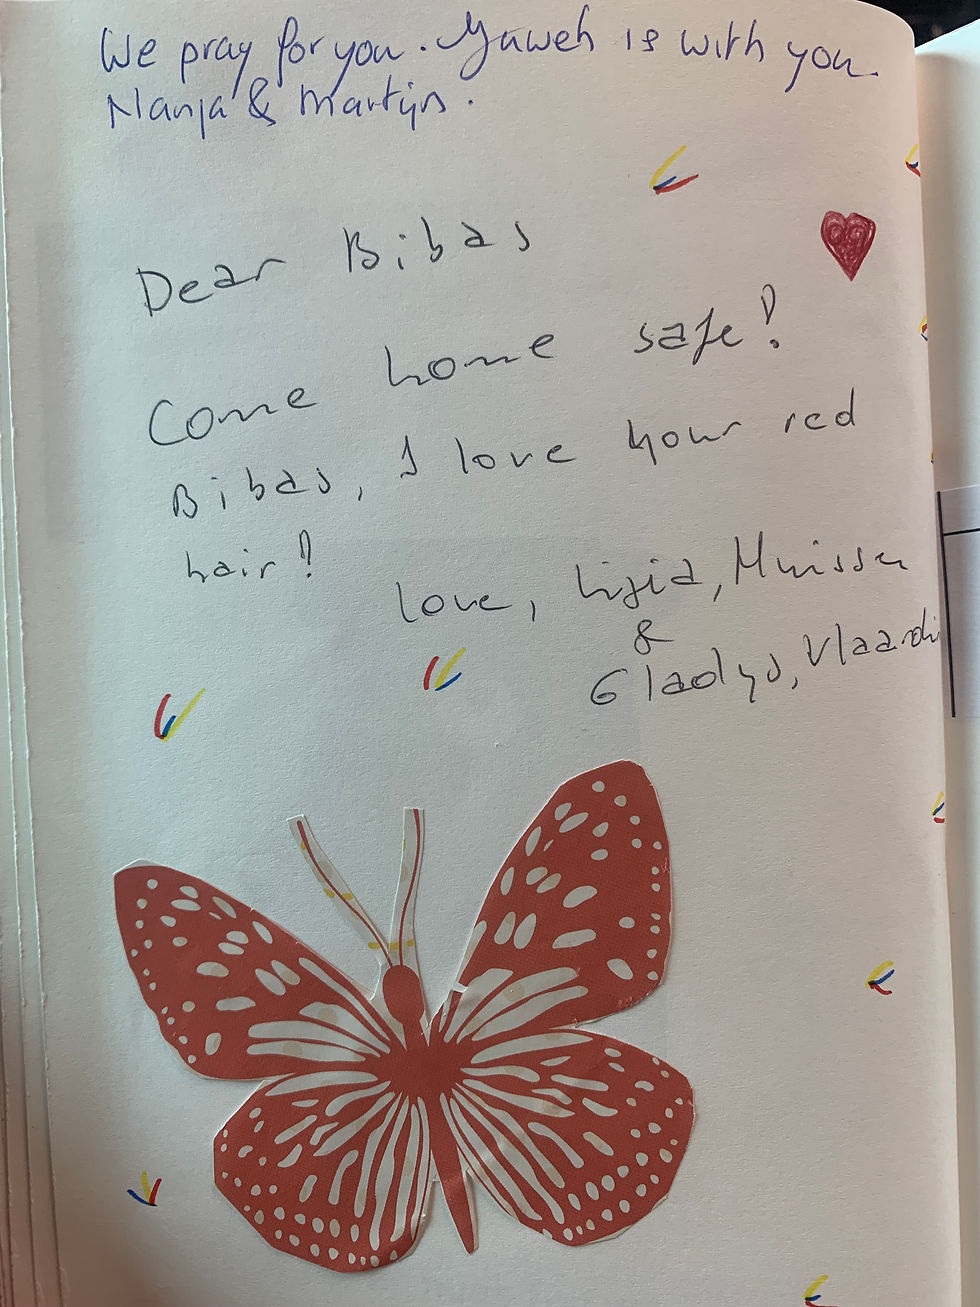 We pray for you. Yaweh is with you.
Nanja & Martijn.
Dear Bibas
Come home safe!
Bibas, I love your red
hair!
Love, Ligia, Muissa
&
Gladys, Vlaardi